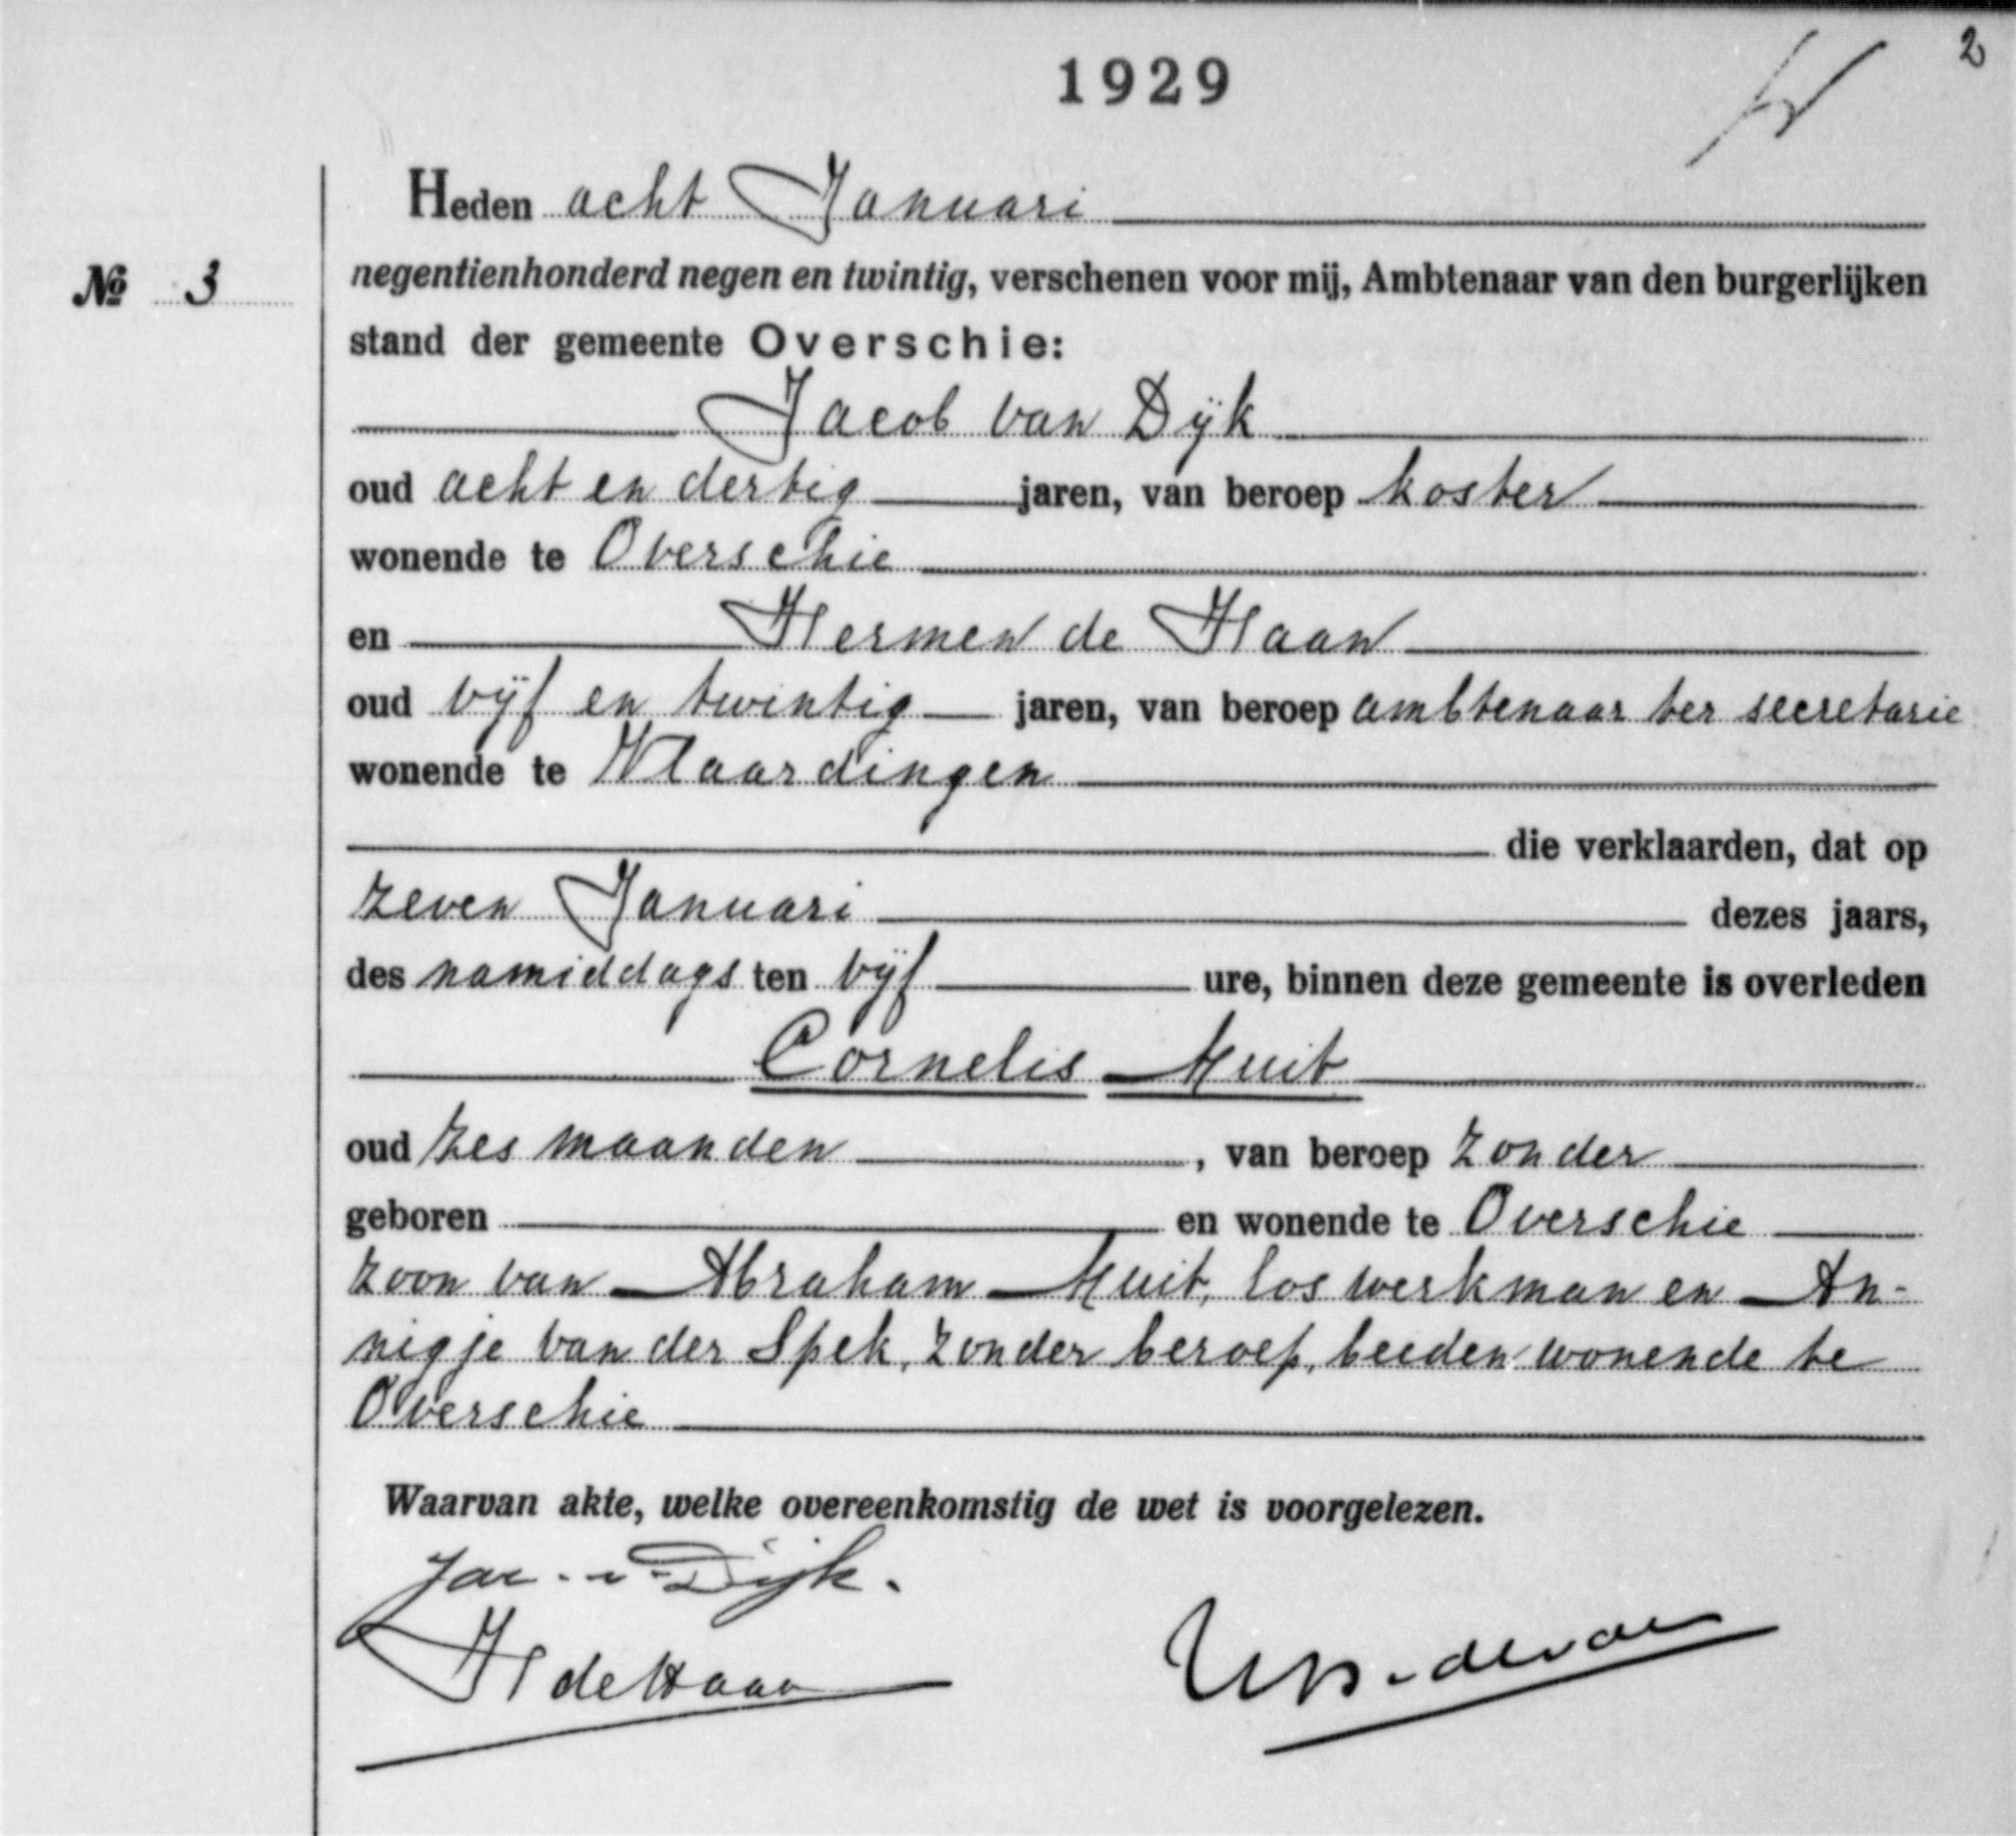 2
1929
Heden acht Januari
№ 3
negentienhonderd negen en twintig, verschenen voor mij, Ambtenaar van den burgerlijken
stand der gemeente Overschie:
Jacob van Dijk
oud acht en dertig jaren, van beroep koster
wonende te Overschie
en Hermen de Haan
oud vijf en twintig jaren, van beroep ambtenaar ter secretarie
wonende te Vlaardingen
die verklaarden, dat op
zeven Januari dezes jaars,
des namiddags ten vijf ure, binnen deze gemeente is overleden
Cornelis Muit
oud zes maanden, van beroep zonder
geboren en wonende te Overschie
zoon van Abraham Muit, los werkman en An-
nigje van der Spek, zonder beroep, beiden wonende te
Overschie
Waarvan akte, welke overeenkomstig de wet is voorgelezen.
Jac. v. Dijk.
H de Haan